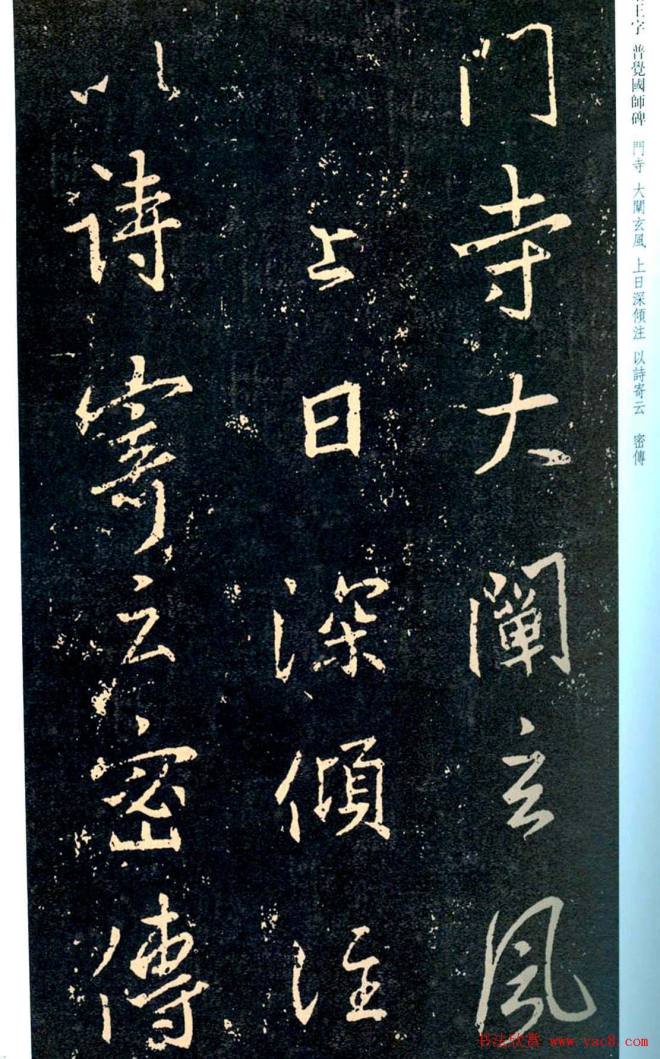 王字 普覺國師碑 門寺 大闡玄風 上日深傾注 以詩寄云 密傳
門寺大闡玄風
上日深傾注
以詩寄云密傳
书法欣赏 www.yac8.com